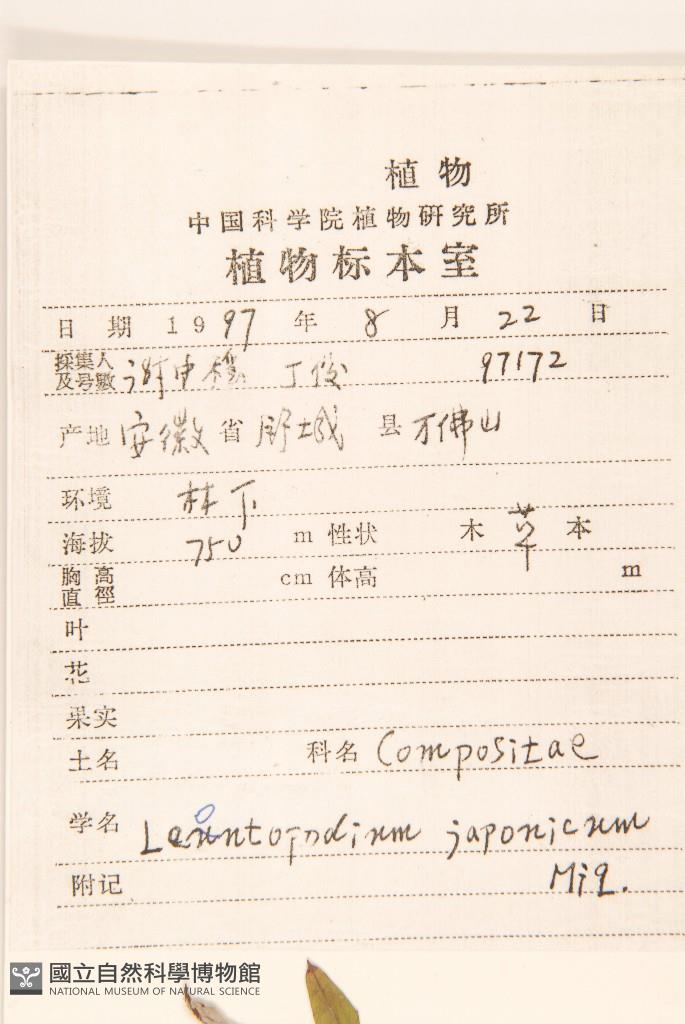 植物
中国科学院植物研究所
植物标本室
日期 1997 年 8 月 22 日
採集人及号數 丁俊 97172
产地 安徽省 舒城 县 万佛山
环境 林下
海拔 750 m 性状 木 草 本
胸高直徑 cm 体高 m
叶
花
果实
土名 科名 Compositae
学名 Leontopodium japonicum
附记 Miq.
國立自然科學博物館
NATIONAL MUSEUM OF NATURAL SCIENCE